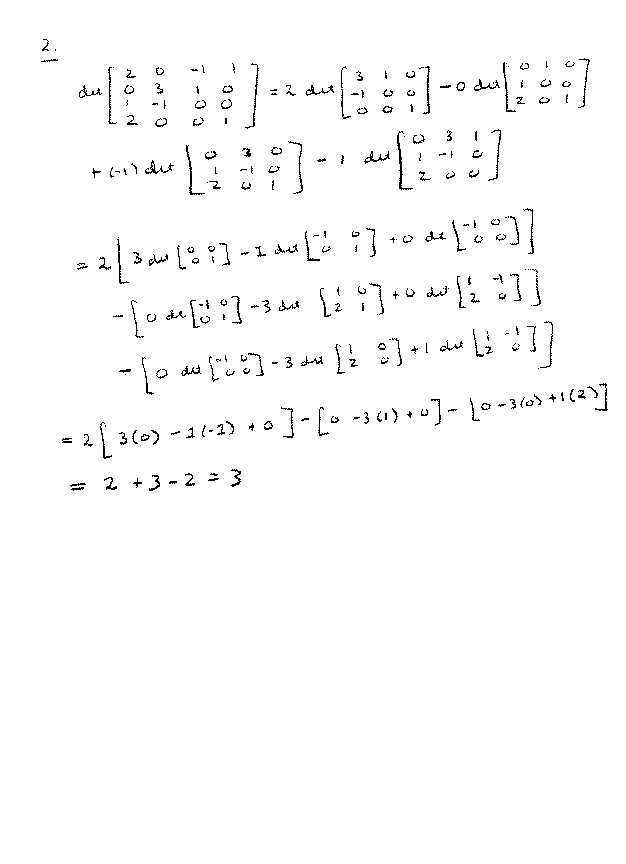 2.
det [2 0 -1 1; 0 3 1 0; 1 -1 0 0; 2 0 0 1] = 2 det [3 1 0; -1 0 0; 0 0 1] - 0 det [0 1 0; 1 0 0; 2 0 1]
+ (-1) det [0 3 0; 1 -1 0; 2 0 1] - 1 det [0 3 1; 1 -1 0; 2 0 0]
= 2 [3 det [0 0; 0 1] - 1 det [-1 0; 0 1] + 0 de [-1 0; 0 0]]
- [0 de [-1 0; 0 1] - 3 det [1 0; 2 1] + 0 det [1 -1; 2 0]]
- [0 det [-1 0; 0 0] - 3 det [1 0; 2 0] + 1 det [1 -1; 2 0]]
= 2 [3(0) - 1(-1) + 0] - [0 - 3(1) + 0] - [0 - 3(0) + 1(2)]
= 2 + 3 - 2 = 3